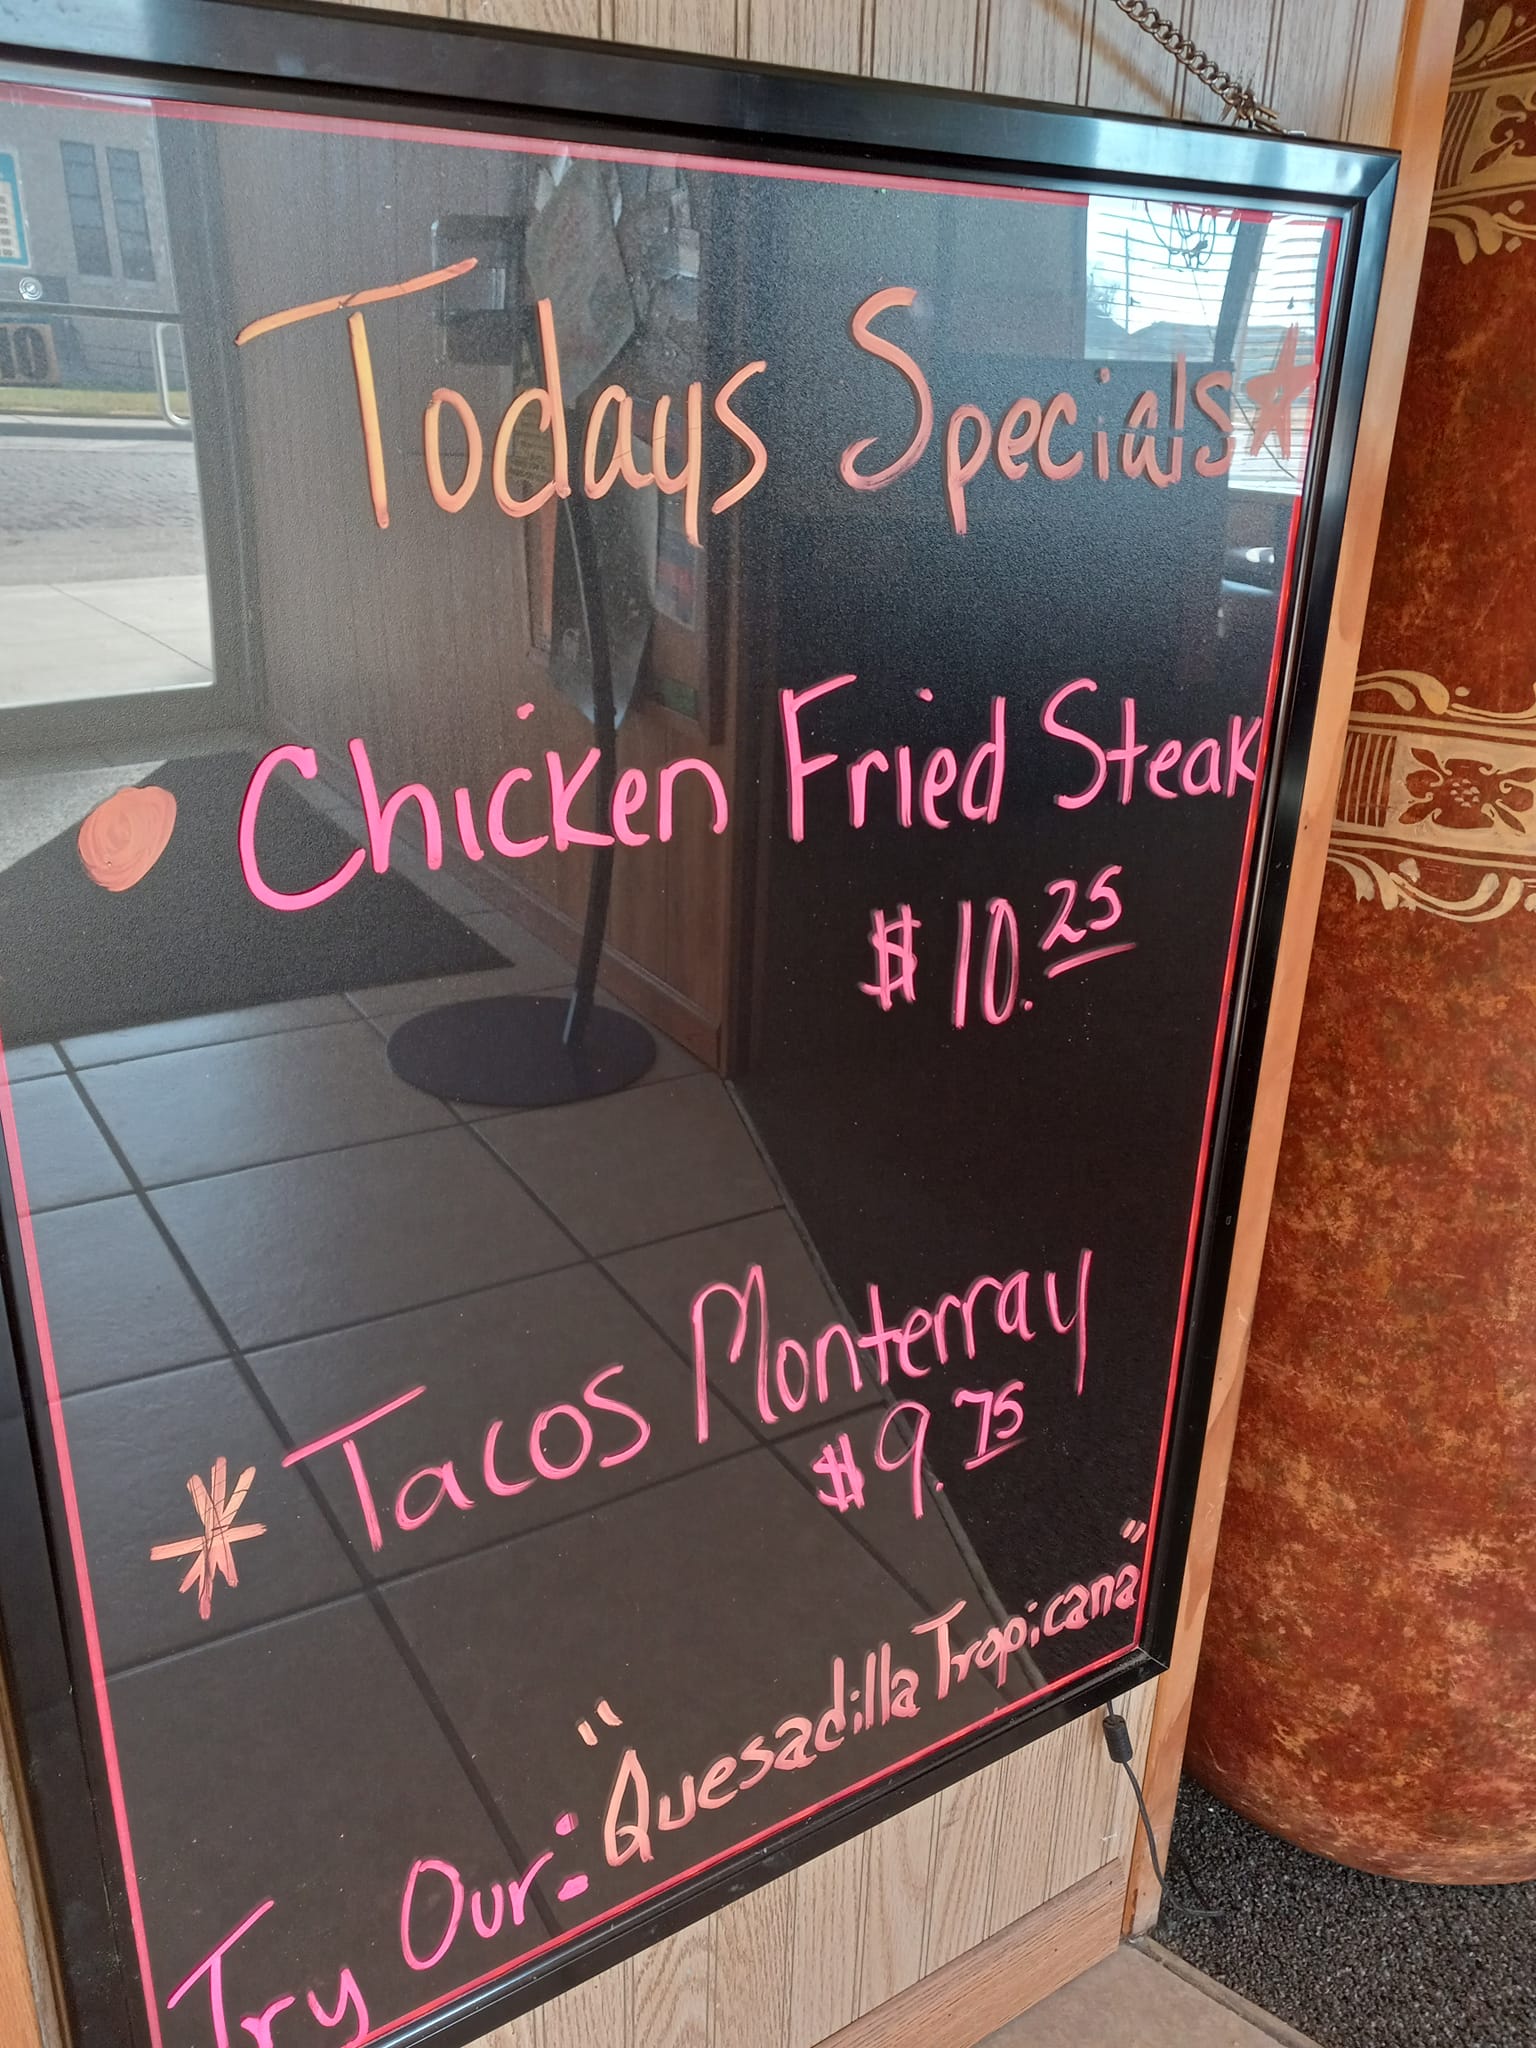 Todays Specials
Chicken Fried Steak
$10.25
Tacos Monterray
$9.75
Try Our: "Quesadilla Tropicana"